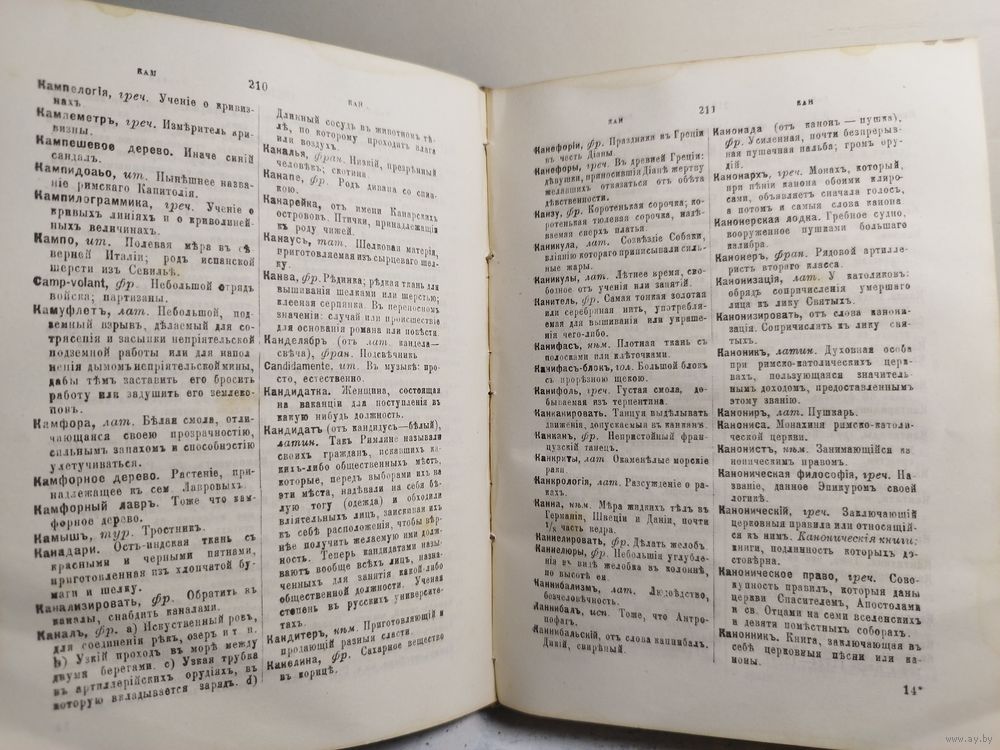 КАМ
210
КАН
Кампелогія, греч. Ученіе о кривиз-
нахъ.
Камлеметръ, греч. Измѣритель кри-
визны.
Кампешевое дерево. Иначе синій
сандалъ.
Кампидольо, ит. Нынѣшнее назва-
ніе римскаго Капитолія.
Кампилограммика, греч. Ученіе о
кривыхъ линіяхъ и о криволиней-
ныхъ величинахъ.
Кампо, ит. Полевая мѣра въ сѣ
верней Италіи; родъ испанской
шерсти изъ Севильѣ.
Camp-volant, фр. Небольшой отрядъ
войска; партизаны.
Камуфлетъ, лат. Небольшой, под-
земный взрывъ, дѣлаемый для со-
трясенія и засыпки непріятельской
подземной работы или для напол
ненія дымомъ непріятельской мины,
дабы тѣмъ заставить его бросить
работу или задушить его землеко-
повъ.
Камфора, лат. Бѣлая смола, отли-
чающаяся своею прозрачностію,
сильнымъ запахомъ и способностію
улетучиваться.
Камфорное дерево. Растеніе, при-
надлежащее къ сем Лавровыхъ.
Камфорный лавръ. Тоже что кам-
форное дерево.
Камышъ, тур. Тростникъ.
Канадари. Ость-индская ткань съ
красными и черными пятнами,
приготовленная изъ хлопчатой бу-
маги и шелку.
Канализировать, фр. Обратить въ
каналы, снабдить каналами.
Каналъ, фр. a) Искуственный ровъ,
для соединенія рѣкъ, озеръ и т п.
b) Узкій проходъ въ морѣ между
двумя берегами. c) Узкая трубка
въ артиллерійскихъ орудіяхъ, въ
которую вкладывается зарядъ. d)
Длинный сосудъ въ животномъ тѣ-
лѣ, по которому проходитъ влага
или воздухъ.
Каналья, фран. Низкій, презрѣнный
человѣкъ; скотина
Канапе, фр. Родъ дивана со спин-
кою.
Канарейка, отъ имени Канарскихъ
острововъ. Птички, принадлежащія
къ роду чижей.
Канаусъ, тат. Шелковая матерія,
приготовляемая изъ сырцеваго шел-
ку.
Канва, фр. Рѣдинка; рѣдкая ткань для
вышиванія шелками или шерстью;
клееная серпинка. Въ переносномъ
значеніи: случай или происшествіе
для основанія романа или повѣсти
Канделябръ (отъ лат. кандела—
свѣча), фран. Подсвѣчникъ
Candidamente, ит. Въ музыкѣ: про-
сто, естественно.
Кандидатка. Женщина, состоящая
на ваканціи для поступленія въ
какую нибудь должность.
Кандидатъ (отъ кандидусъ—бѣлый),
латин. Такъ Римляне называли
своихъ гражданъ, искавшихъ ка-
кихъ-либо общественныхъ мѣстъ,
которые, передъ выборами ихъ на
эти мѣста, надѣвали на себя бѣ-
лую тогу (одежда) и обходили
вліятельныхъ лицъ, заискивая ихъ
къ себѣ расположенія, чтобы вѣр-
нѣе получить желаемую ими долж-
ность. Теперь кандидатами назы-
ваютъ вообще всѣхъ лицъ, назна-
ченныхъ для занятія какой-либо
общественной должности. Ученая
степень въ русскихъ университе-
тахъ.
Кандитеръ, нѣм. Приготовляющій и
продающій разныя сласти.
Канелина, фр. Сахарное вещество
въ корицѣ.
КАН
211
КАН
Канефоріи, фр. Праздники въ Греціи
въ честь Діаны.
Канефоры, греч. Въ древней Греціи:
дѣвушки, приносившія Діанѣ жертву
желавшихъ отказаться отъ обѣта
дѣвственности.
Канзу, фр. Коротенькая сорочка; ко-
ротенькая нюлевая сорочка, надѣ-
ваемая сверхъ платья.
Каникула, лат. Созвѣздіе Собаки,
вліянію котораго приписывали силь-
ные жары.
Каникулы, лат. Лѣтнее время, сво-
бодное отъ ученія или занятій.
Канитель, фр. Самая тонкая золотая
или серебряная нить, употребляе-
мая для вышиванія или украше-
нія чего-либо.
Канифасъ, нѣм. Плотная ткань съ
полосками или клѣточками.
Канифасъ-блокъ, гол. Большой блокъ
съ прорѣзною щекою.
Канифоль, греч. Густая смола, до-
бываемая изъ терпентина.
Канканировать. Танцуя выдѣлывать
движенія, допускаемыя въ канканѣ.
Канканъ, фр. Непристойный фран-
цузскій танецъ.
Канкриты, лат. Окаменѣлые морскіе
раки.
Канкрологія, лат. Разсужденіе о ра-
кахъ.
Канна, нѣм. Мѣра жидкихъ тѣлъ въ
Германіи, Швеціи и Даніи, почти
1/8 часть ведра.
Каннелировать, фр. Дѣлать желобъ.
Каннелюры, фр. Небольшія углубле-
нія въ видѣ желобка въ колоннѣ,
по высотѣ ея.
Каннибализмъ, лат. Людоѣдство,
безчеловѣчность.
Каннибалъ, исп. Тоже, что Антро-
пофагъ.
Каннибальскій, отъ слова каннибалъ.
Дикій, свирѣпый.
Канонада (отъ канонъ — пушка),
фр. Усиленная, почти безпрерыв-
ная пушечная пальба; громъ ору-
дій.
Канонархъ, греч. Монахъ, который,
при пѣніи канона обоими клиро-
сами, объявляетъ сначала голосъ,
а потомъ и самыя слова канона
Канонерская лодка. Гребное судно,
вооруженное пушками большаго
калибра.
Канонеръ, фран. Рядовой артилле-
ристъ втораго класса.
Канонизація, лат. У католиковъ:
обрядъ сопричисленія умершаго
лица къ лику Святыхъ.
Канонизировать, отъ слова канони-
зація. Сопричислить къ лику свя-
тыхъ.
Каноникъ, латин. Духовная особа
при римско-католическихъ церк-
вахъ, пользующаяся значитель-
нымъ доходомъ, предоставленнымъ
этому званію.
Канониръ, лат. Пушкарь.
Канониса. Монахиня римско-католи-
ческой церкви.
Канонистъ, нѣм. Занимающійся ка-
ноническимъ правомъ.
Каноническая философія, греч. На-
званіе, данное Эпикуромъ своей
логикѣ.
Каноническій, греч. Заключающій
церковныя правила или относящій-
ся къ нимъ. Каноническія книги;
книги, подлинность которыхъ до-
стовѣрна.
Каноническое право, греч. Сово-
купность правилъ, которыя даны
церкви Спасителемъ, Апостолами
и св. Отцами на семи вселенскихъ
и девяти помѣстныхъ соборахъ.
Канонникъ. Книга, заключающая въ
себѣ церковныя пѣсни или ка-
ноны.
14*
www.ay.by